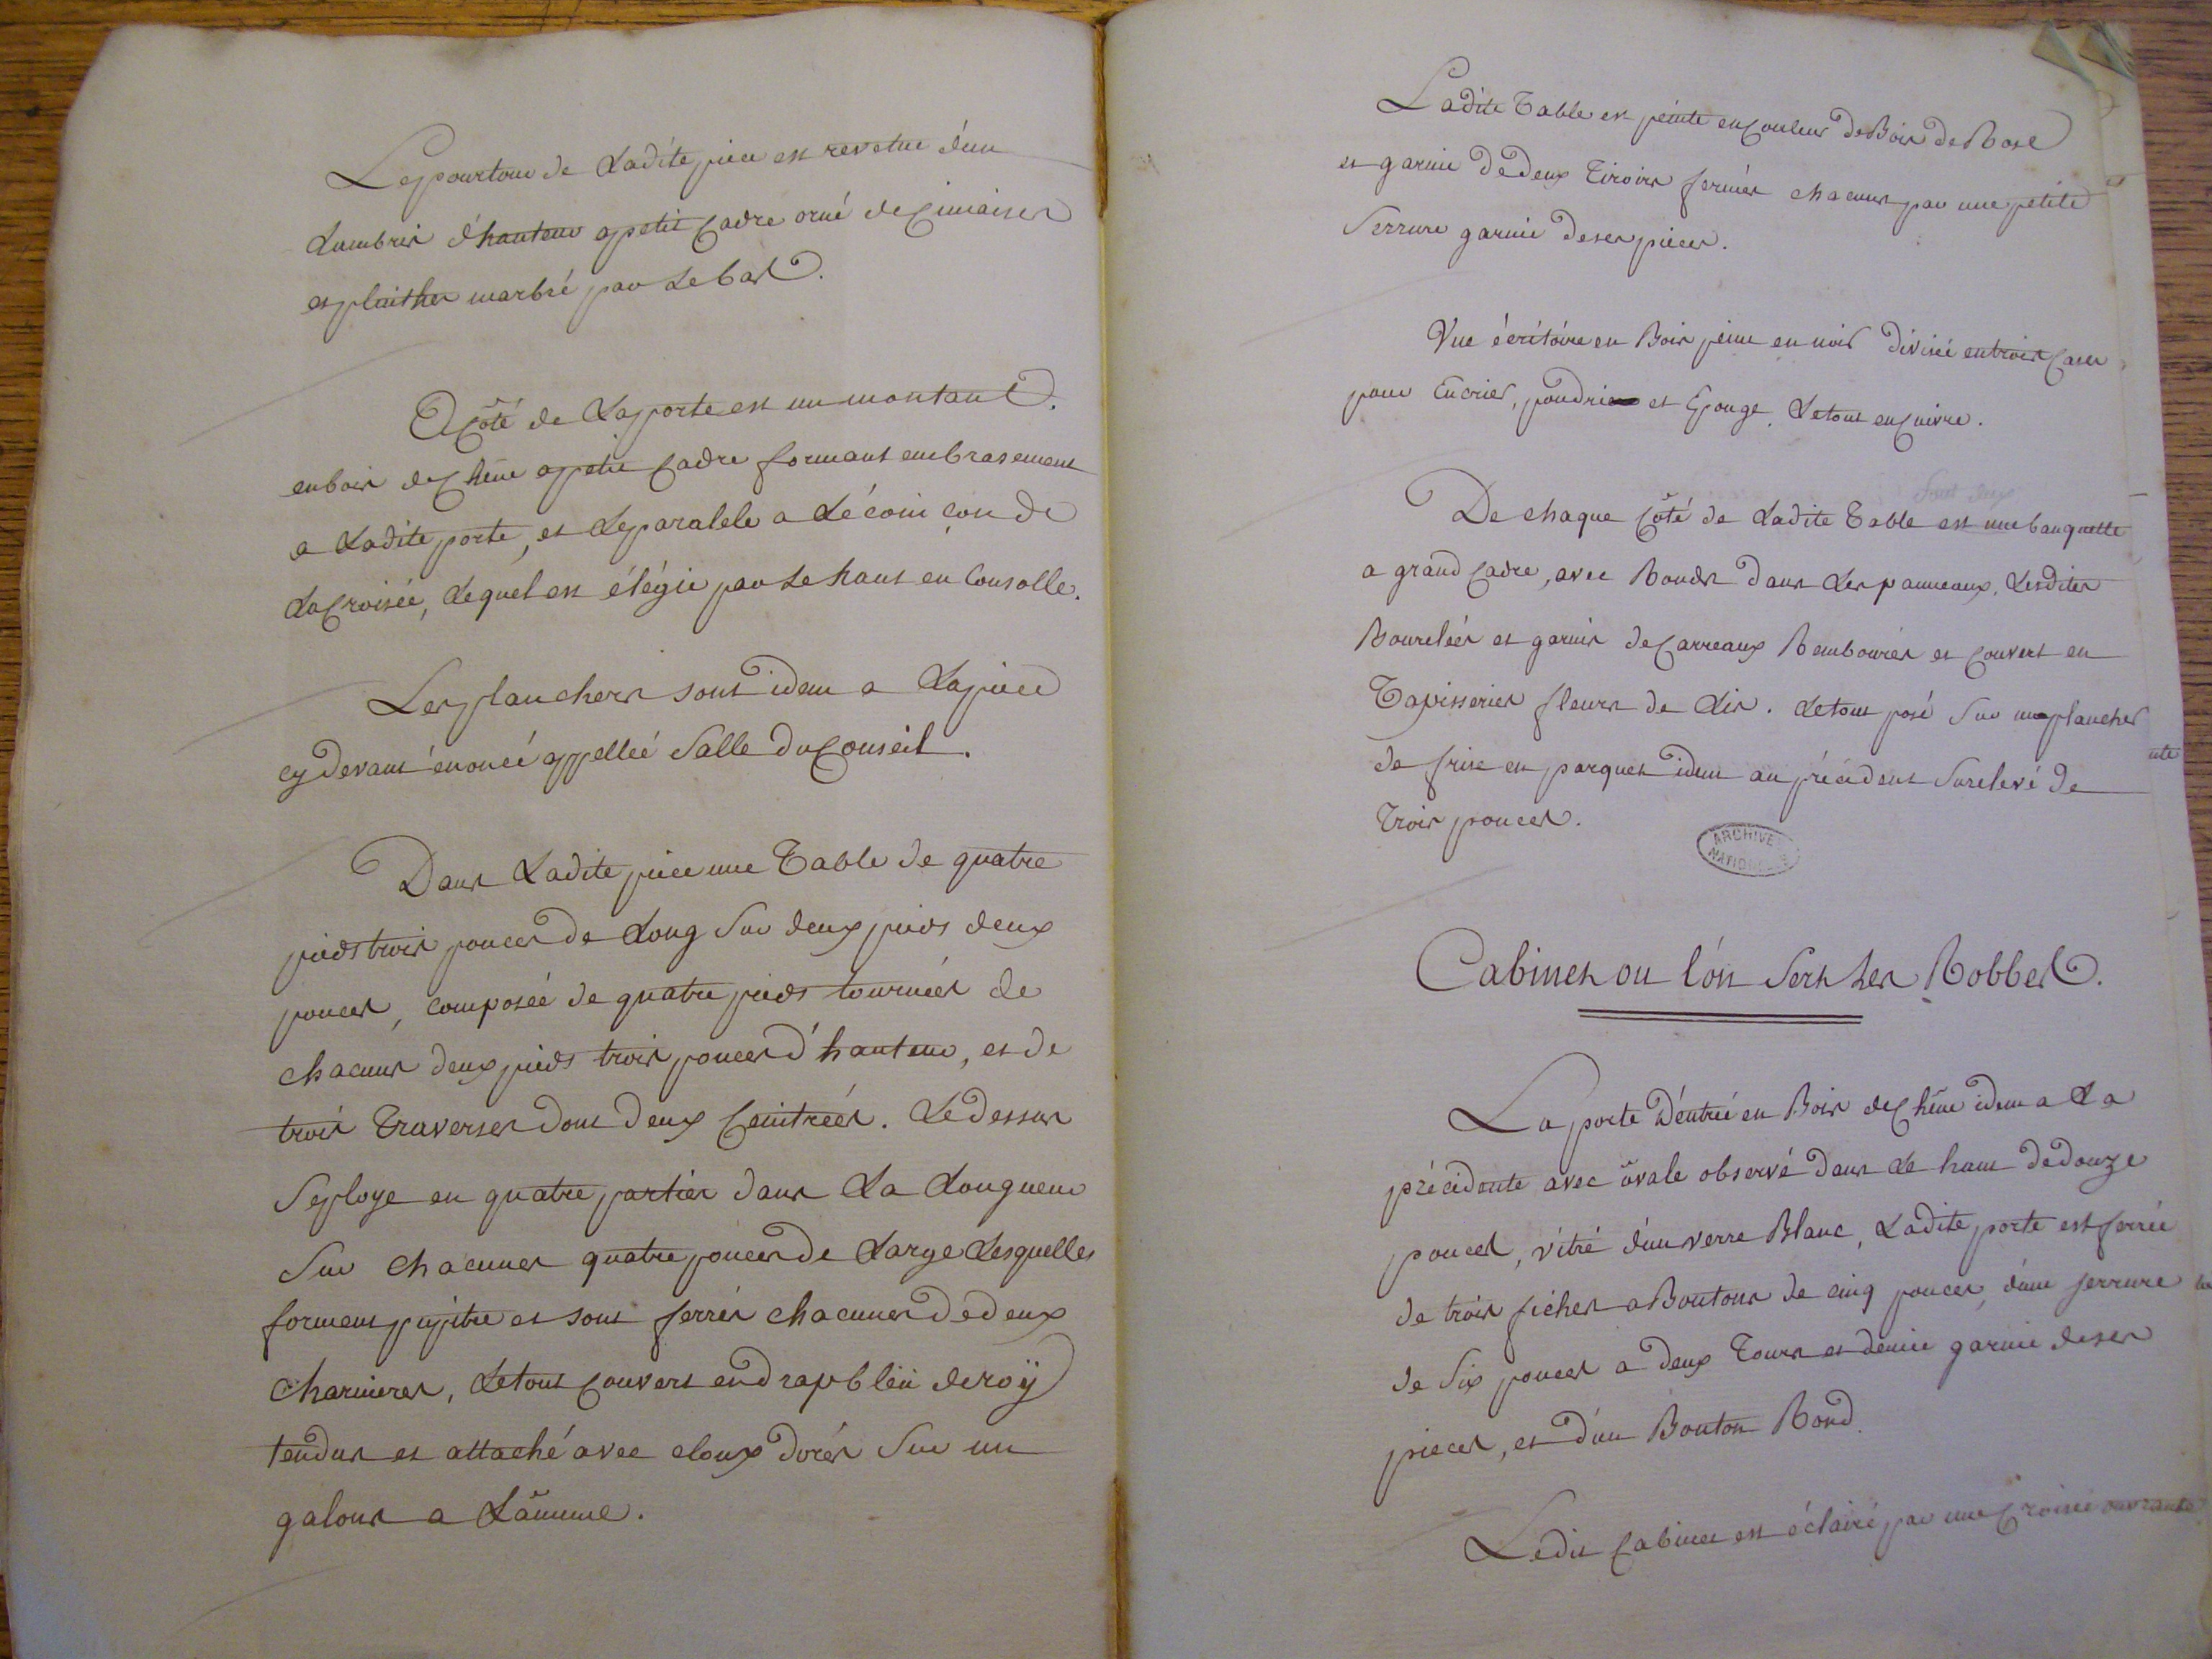 Le pourtour de Ladite piece est revetue d'un
Lambris d'hauteur a petit Cadre orné de Cimaises
et plinthes marbré par Le bas.
A Côté de La porte est un montant
en bois de Chêne a petit Cadre formant embrasement
a Ladite porte, et Le paralele a L'écoinçon de
La Croisée, Lequel est élégie par Le haut en Consolle.
Les planchers sont idem a La piece
cy devant énoncé appellée Salle du Conseil.
Dans Ladite piece une Table de quatre
pieds trois pouces de Long Sur deux pieds deux
pouces, composée de quatre pieds tournées de
chacuns deux pieds trois pouces d'hauteur, et de
trois Traverses dont deux Ceintrées. Le dessus
Se ploye en quatre parties dans La Longueur
Sur chacunes quatre pouces de Large Lesquelles
forment pupitre et sont ferrés chacunes de deux
charnieres, Le tout Couvert en drap bleu de roÿ
tendus et attaché avec cloux dorés Sur un
galons a Laumne.
Ladite Table est peinte en Couleur de Bois de Rose
et garnie de deux Tiroirs fermés chacuns par une petite
Serrure garnie de ses pieces.
Une écritoire en Bois peint en noir divisée en trois Cases
pour Encrier, poudrier et Eponge, Le tout en Cuivre.
Sont deux
De chaque Côté de Ladite Table est une banquette
a grand Cadre, avec Ronds dans Les panneaux, Lesdites
Bourelées et garnis de Carreaux Rembourés et Couvert en
Tapisseries fleurs de Lis. Le tout posé Sur un plancher
de frise en parquet idem au précédent Surelevé de
Trois pouces.
ARCHIVES NATIONALES
Cabinet ou l'on Sert Les Robbes.
La porte D'entrée en Bois de Chêne idem a La
précédente avec ovale observé dans Le haut de douze
pouces, vitré d'un verre Blanc, Ladite porte est ferrée
de trois fiches a Boutons de cinq pouces, d'une serrure
de Six pouces a deux Tours et demie garnie de ses
pieces, et d'un Bouton Rond.
Ledit Cabinet est éclairé par une Croisée ouvrante